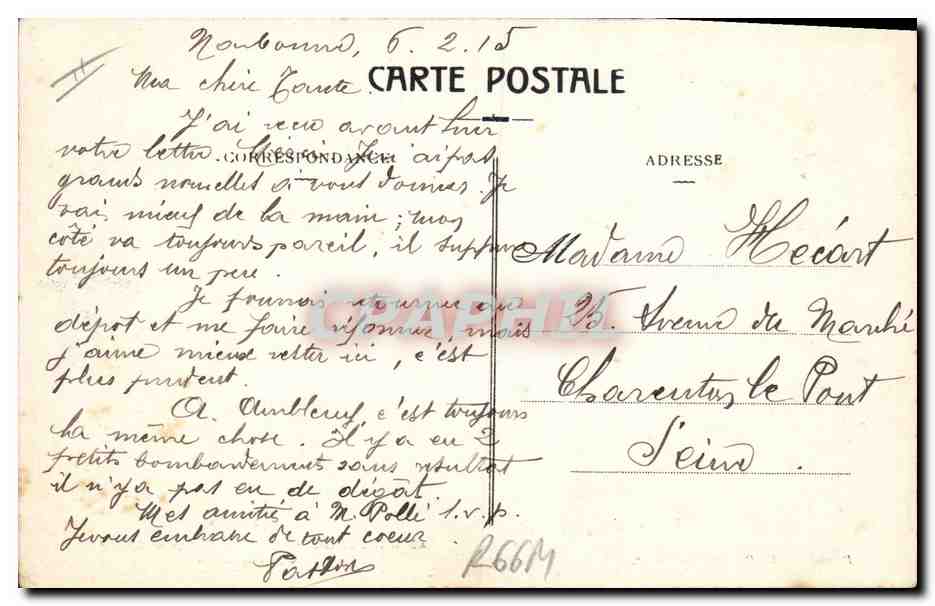 Narbonne, 6.2.15
Ma chère Tante.
CARTE POSTALE
J'ai recu avant hier
votre lettre. Je n'ai pas
CORRESPONDANCE
grands nouvelles à vous donner. Je
vais mieux de la main ; mon
côté va toujours pareil, il suppure
toujours un peu.
Je pourrais retourner au
dépot et me faire réformer, mais
j'aime mieux rester ici, c'est
plus prudent.
A Ambleny c'est toujours
la même chose. Il y a eu 2
petits bombardements sans résultat
il n'y a pas eu de dégât.
Mes amitiés à M. Pollé s.v.p.
Je vous embrasse de tout coeur
ADRESSE
Madame Hécart
25. Avenue du Marché
Charenton le Pont
Seine.
CPAPHIL
R66M